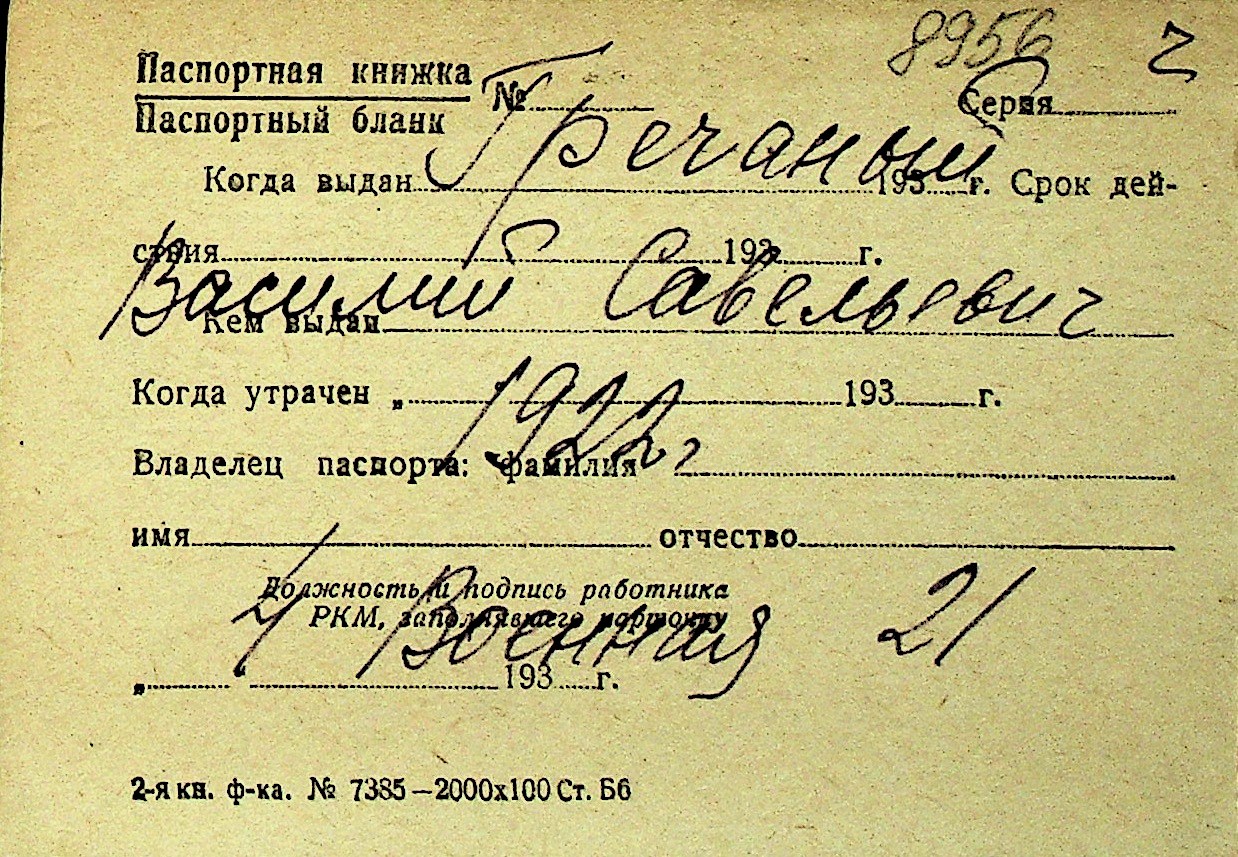 8956 2
Паспортная книжка
Паспортный бланк
№ Серия
Гречаный
Когда выдан 193 г. Срок дей-
ствия 193 г.
Василий Савельевич
Кем выдан
Когда утрачен „ 193 г.
1922 г
Владелец паспорта: фамилия
имя отчество
Должность и подпись работника
РКМ, заполнявшего карточку
4 Военная 21
„ " 193 г.
2-я кн. ф-ка. № 7385—2000х100 Ст. Б6